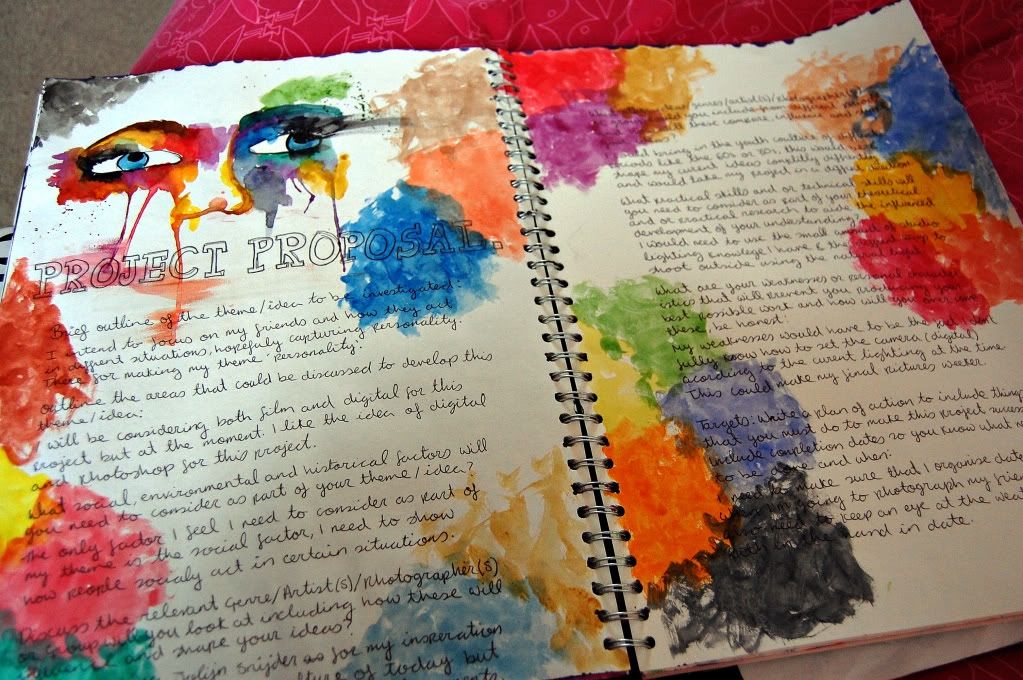 PROJECT PROPOSAL.
Brief outline of the theme/idea to be investigated:
I intend to focus on my friends and how they act
in diffrent situations, hopefuly capturing personality.
There for making my theme 'Personality'.
Outline the areas that could be discussed to develop this
theme/idea:
I will be considering both film and digital for this
project but at the moment. I like the idea of digital
and photoshop for this project.
What social, environmental and historical factors will
you need to consider as part of your theme/idea?
The only factor I feel I need to consider as part of
my theme is the social factor, I need to show
how people socialy act in certain situations.
Discuss the relevant Genre/Artist(s)/Photographer(s)
or Group will you look at including how these will
influence and shape your ideas?
Snijder as for my insperation
of today but
genres/artist(s)/photographer(s)
you include from different
these compare, influence and
the youth culture
periods like the 60s or 70s. this would
shape my current ideas completly
and would take my project in a
What Practical skills and or technical skills will
you need to consider as part of your theoretical
and or practical research to aid the influenced
development of your understanding
I would need to use the small studio
lighting knowlege I have &
shoot outside using the natural light
What are your weaknesses or personal character
istics that will prevent you producing your
best possible work and how will you over come
these? be honest!
My weaknesses would have to be the
fully know how to set the camera (digital)
acording to the curent lighting at the time.
This could make my final pictures weeker.
Targets: Write a plan of action to include things
that you must do to make this project
include completion dates so you know what
to be done and when:
I need to make sure that I organise dates
going to photograph my
need to keep an eye at the
hand in date.